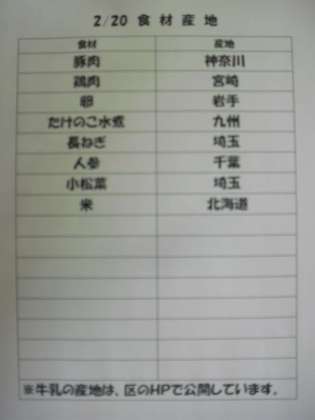 2/20 食材産地
食材 産地
豚肉 神奈川
鶏肉 宮崎
卵 岩手
たけのこ水煮 九州
長ねぎ 埼玉
人参 千葉
小松菜 埼玉
米 北海道
※牛乳の産地は、区のHPで公開しています。